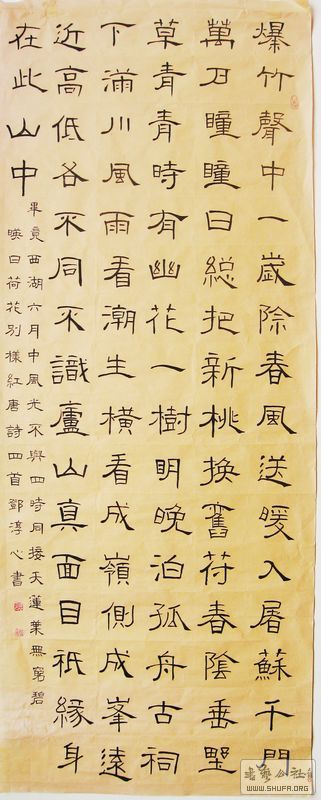 爆竹聲中一歲除春風送暖入屠蘇千門
萬戶瞳瞳日總把新桃換舊符春陰垂野
草青青時有幽花一樹明晚泊孤舟古祠
下滿川風雨看潮生橫看成嶺側成峯遠
近高低各不同不識廬山真面目祇緣身
在此山中
畢竟西湖六月中風光不與四時同接天蓮葉無窮碧
暎日荷花別樣紅唐詩四首鄧淳心書
書藝公社
WWW.SHUFA.ORG